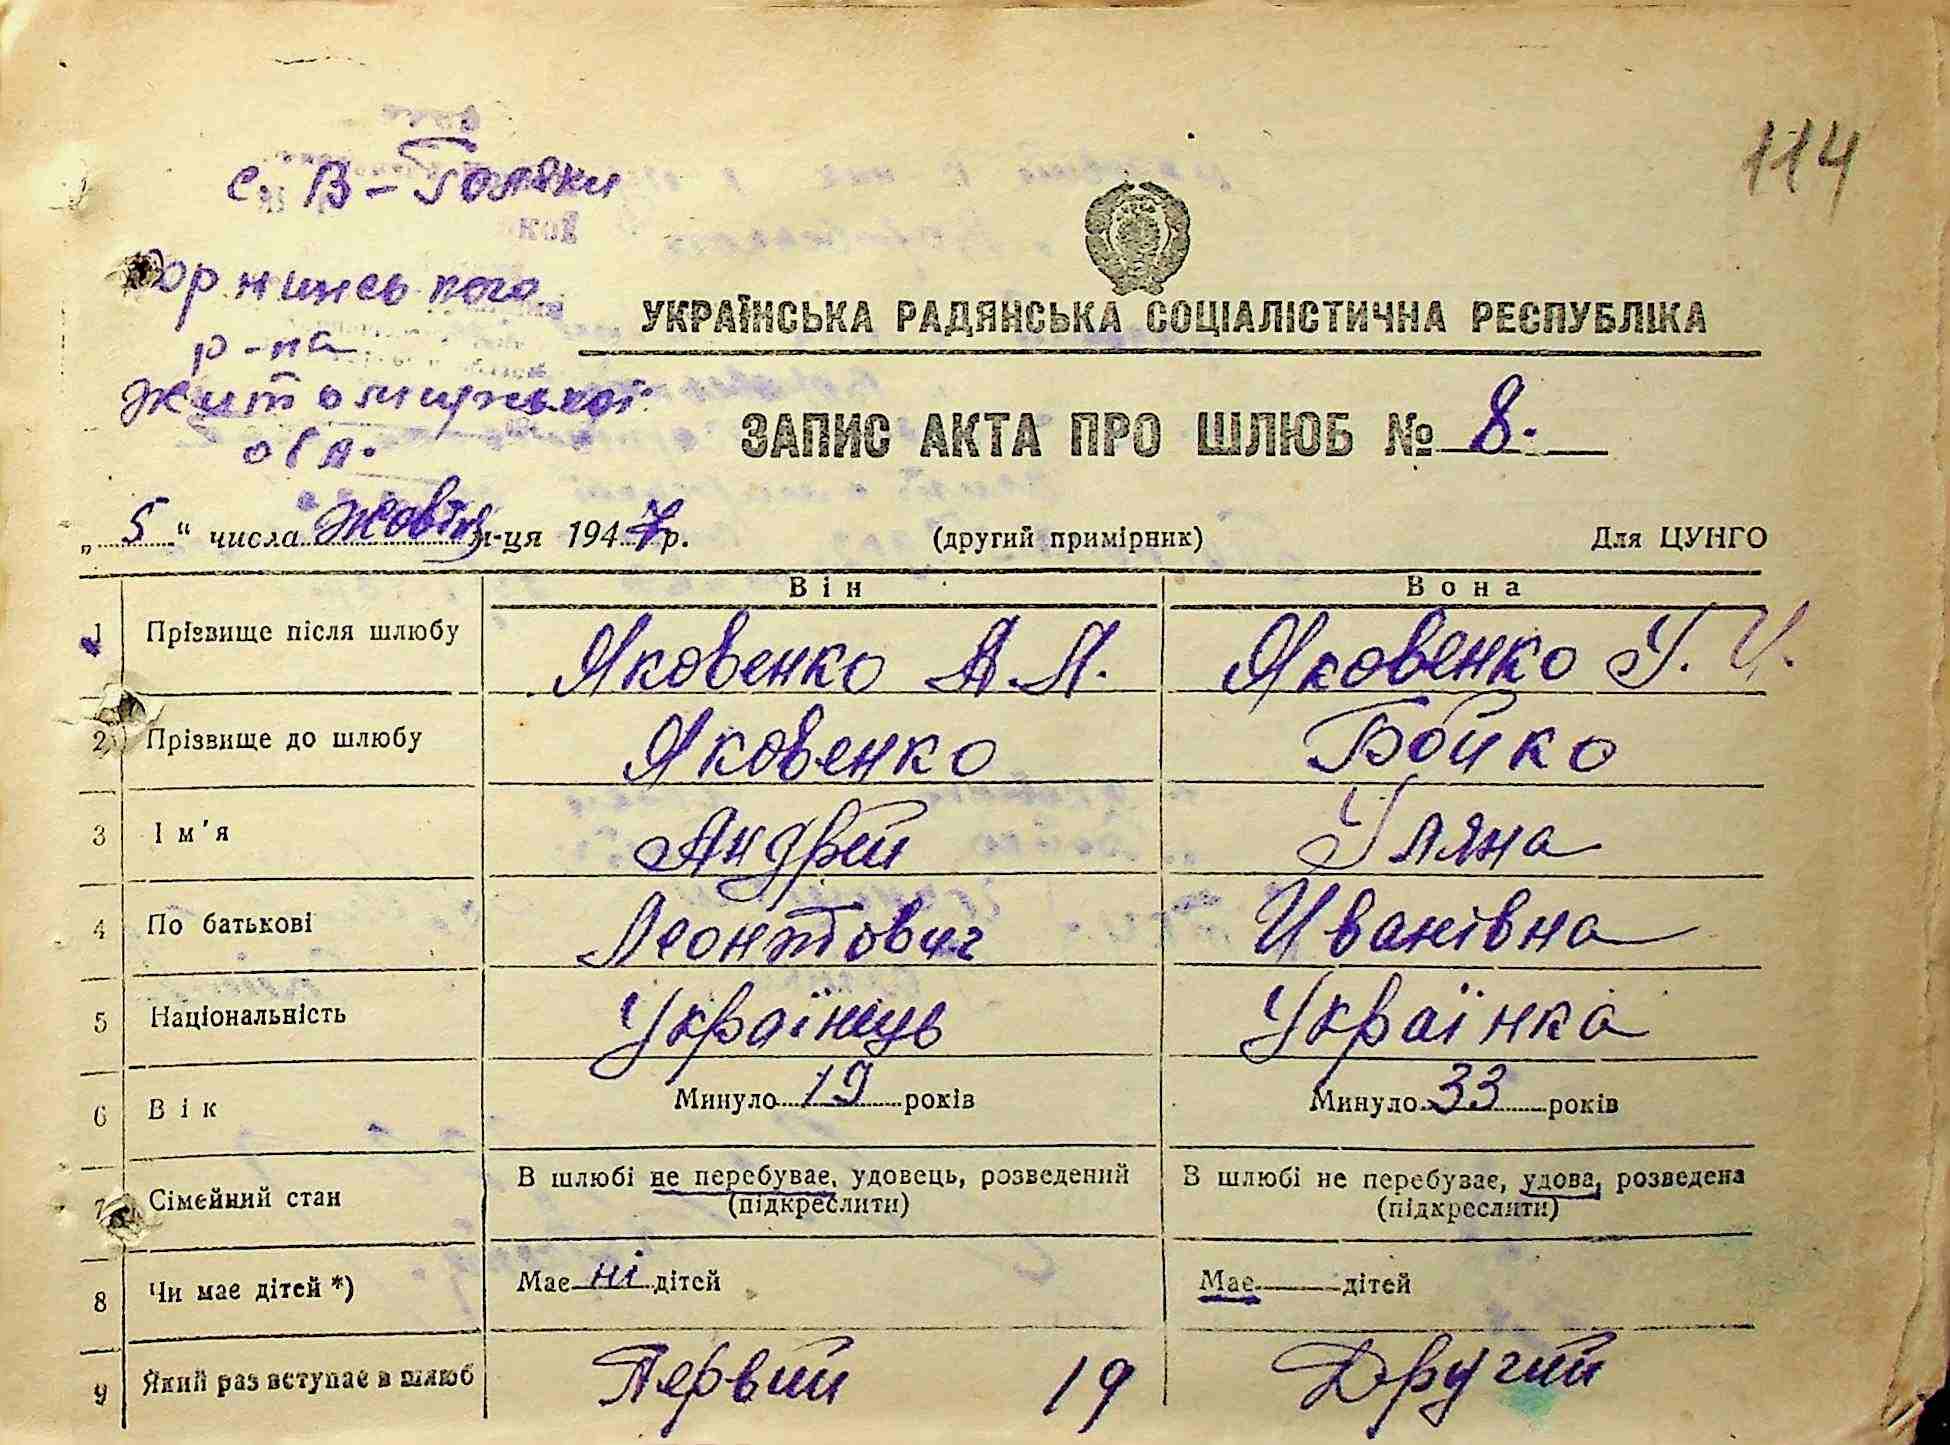 114
с. В-Голяки
Корнинського
р-на
Житомирської
обл.
УКРАЇНСЬКА РАДЯНСЬКА СОЦІАЛІСТИЧНА РЕСПУБЛІКА
ЗАПИС АКТА ПРО ШЛЮБ № 8.
„ 5 " числа Жовтня м-ця 1947 р. (другий примірник) Для ЦУНГО
Він Вона
1 Прізвище після шлюбу Яковенко А.Л. Яковенко У. И.
2 Прізвище до шлюбу Яковенко Бойко
3 Ім'я Андрей Уляна
4 По батькові Леонтович Иванівна
5 Національність Українець Українка
6 Вік Минуло 19 років Минуло 33 років
7 Сімейний стан В шлюбі не перебуває, удовець, розведений В шлюбі не перебуває, удова, розведена
(підкреслити) (підкреслити)
8 Чи має дітей *) Має ні дітей Має дітей
9 Який раз вступає в шлюб Первий 19 Другий